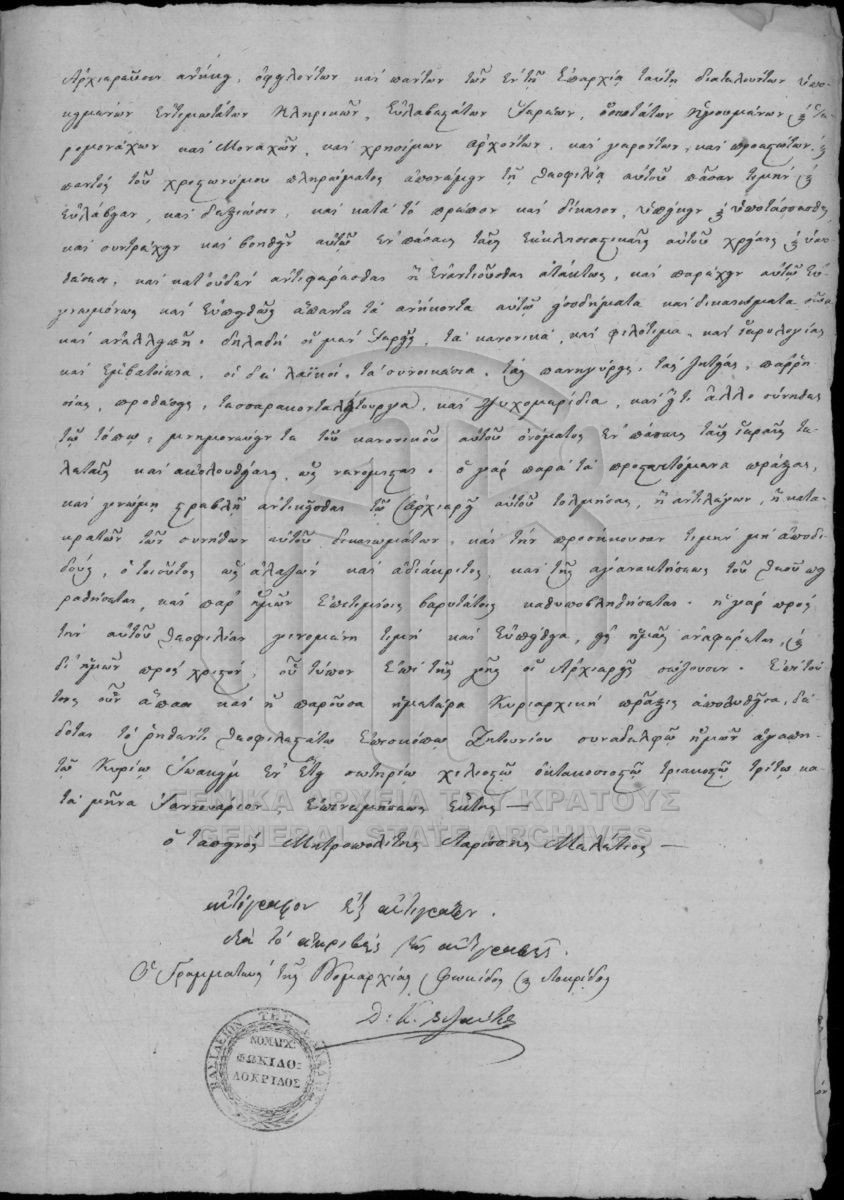 Ἀρχιερατικῶς ἀνήκει, ὀφειλόντων καὶ πάντων τῶν ἐν τῇ ἐπαρχίᾳ ταύτῃ διατελούντων ὑπο-
κειμένων ἐντιμοτάτων κληρικῶν, εὐλαβεστάτων ἱερέων, ὁσιωτάτων ἡγουμένων καὶ ἱε-
ρομονάχων καὶ μοναχῶν, καὶ χρησίμων ἀρχόντων, καὶ γερόντων, καὶ προεστώτων, καὶ
παντὸς τοῦ χριστωνύμου πληρώματος ἀπονέμειν τῇ θεοφιλίᾳ αὐτοῦ πᾶσαν τιμὴν καὶ
εὐλάβειαν, καὶ δεξίωσιν, καὶ κατὰ τὸ πρέπον καὶ δίκαιον, ὑπείκειν καὶ ὑποτάσσεσθαι,
καὶ συντρέχειν καὶ βοηθεῖν αὐτῷ ἐν πάσαις ταῖς ἐκκλησιαστικαῖς αὐτοῦ χρείαις καὶ ὑπο-
θέσεσι, καὶ κατ' οὐδὲν ἀντιφέρεσθαι ἢ ἐναντιοῦσθαι ἀτάκτως, καὶ παρέχειν αὐτῷ εὐ-
γνωμόνως καὶ εὐπειθῶς ἅπαντα τὰ ἀνήκοντα αὐτῷ εἰσοδήματα καὶ δικαιώματα σῶα
καὶ ἀνελλιπῆ· δηλαδὴ οἱ μὲν ἱερεῖς, τὰ κανονικά, καὶ φιλότιμα, καὶ ἱερολογίας
καὶ ἐμβατοίκια, οἱ δὲ λαϊκοί, τὰ συνοικέσια, τὰς πανηγύρεις, τὰς ζητείας, παρρη-
σίας, προθέσεις, τεσσαρακονταλείτουργα, καὶ ψυχομερίδια, καὶ εἴ τι ἄλλο σύνηθες
τῷ τόπῳ, μνημονεύειν τε τοῦ κανονικοῦ αὐτοῦ ὀνόματος ἐν πάσαις ταῖς ἱεραῖς τε-
λεταῖς καὶ ἀκολουθίαις, ὡς νενόμισται. ὁ γὰρ παρὰ τὰ προσταττόμενα πράξας,
καὶ γνώμῃ στρεβλῇ ἀντικεῖσθαι τῷ Ἀρχιερεῖ αὐτοῦ τολμήσας, ἢ ἀντιλέγων, ἢ κατα-
κρατῶν τῶν συνήθων αὐτοῦ δικαιωμάτων, καὶ τὴν προσήκουσαν τιμὴν μὴ ἀποδι-
δούς, ὁ τοιοῦτος ὡς ἀλαζὼν καὶ ἀδιάκριτος, καὶ τῆς ἀγανακτήσεως τοῦ Θεοῦ πει-
ραθήσεται, καὶ παρ' ἡμῶν ἐπιτιμίοις βαρυτάτοις καθυποβληθήσεται. ἡ γὰρ πρὸς
τὴν αὐτοῦ θεοφιλίαν γινομένη τιμὴ καὶ εὐπείθεια, εἰς ἡμᾶς ἀναφέρεται, καὶ
δι' ἡμῶν πρὸς Χριστόν, οὗ τύπον ἐπὶ τῆς γῆς οἱ Ἀρχιερεῖς σώζουσιν. Ἐπὶ τού-
τοις οὖν ἅπασι καὶ ἡ παροῦσα ἡμετέρα Κυριαρχικὴ πρᾶξις ἀπολυθεῖσα, δέ-
δοται τῷ ῥηθέντι θεοφιλεστάτῳ ἐπισκόπῳ Ζητουνίου συναδελφῷ ἡμῶν ἀγαπη-
τῷ Κυρίῳ Ἰωακεὶμ ἐν ἔτει σωτηρίῳ χιλιοστῷ ὀκτακοσιοστῷ τριακοστῷ τρίτῳ κα-
τὰ μῆνα Ἰαννουάριον, ἐπινεμήσεως ἕκτης—
ὁ ταπεινὸς Μητροπολίτης Λαρίσσης Μελέτιος—
ἀντίγραφον ἐξ ἀντιγράφου.
διὰ τὸ ἀκριβὲς τῆς ἀντιγραφῆς.
Ὁ Γραμματεὺς τῆς Νομαρχίας Φωκίδος καὶ Λοκρίδος
ΒΑΣΙΛΕΙΟΝ ΤΗΣ ΕΛΛΑΔΟΣ
ΝΟΜΑΡΧ:
ΦΩΚΙΔΟ:
ΛΟΚΡΙΔΟΣ
ΓΕΝΙΚΑ ΑΡΧΕΙΑ ΤΟΥ ΚΡΑΤΟΥΣ
GENERAL STATE ARCHIVES